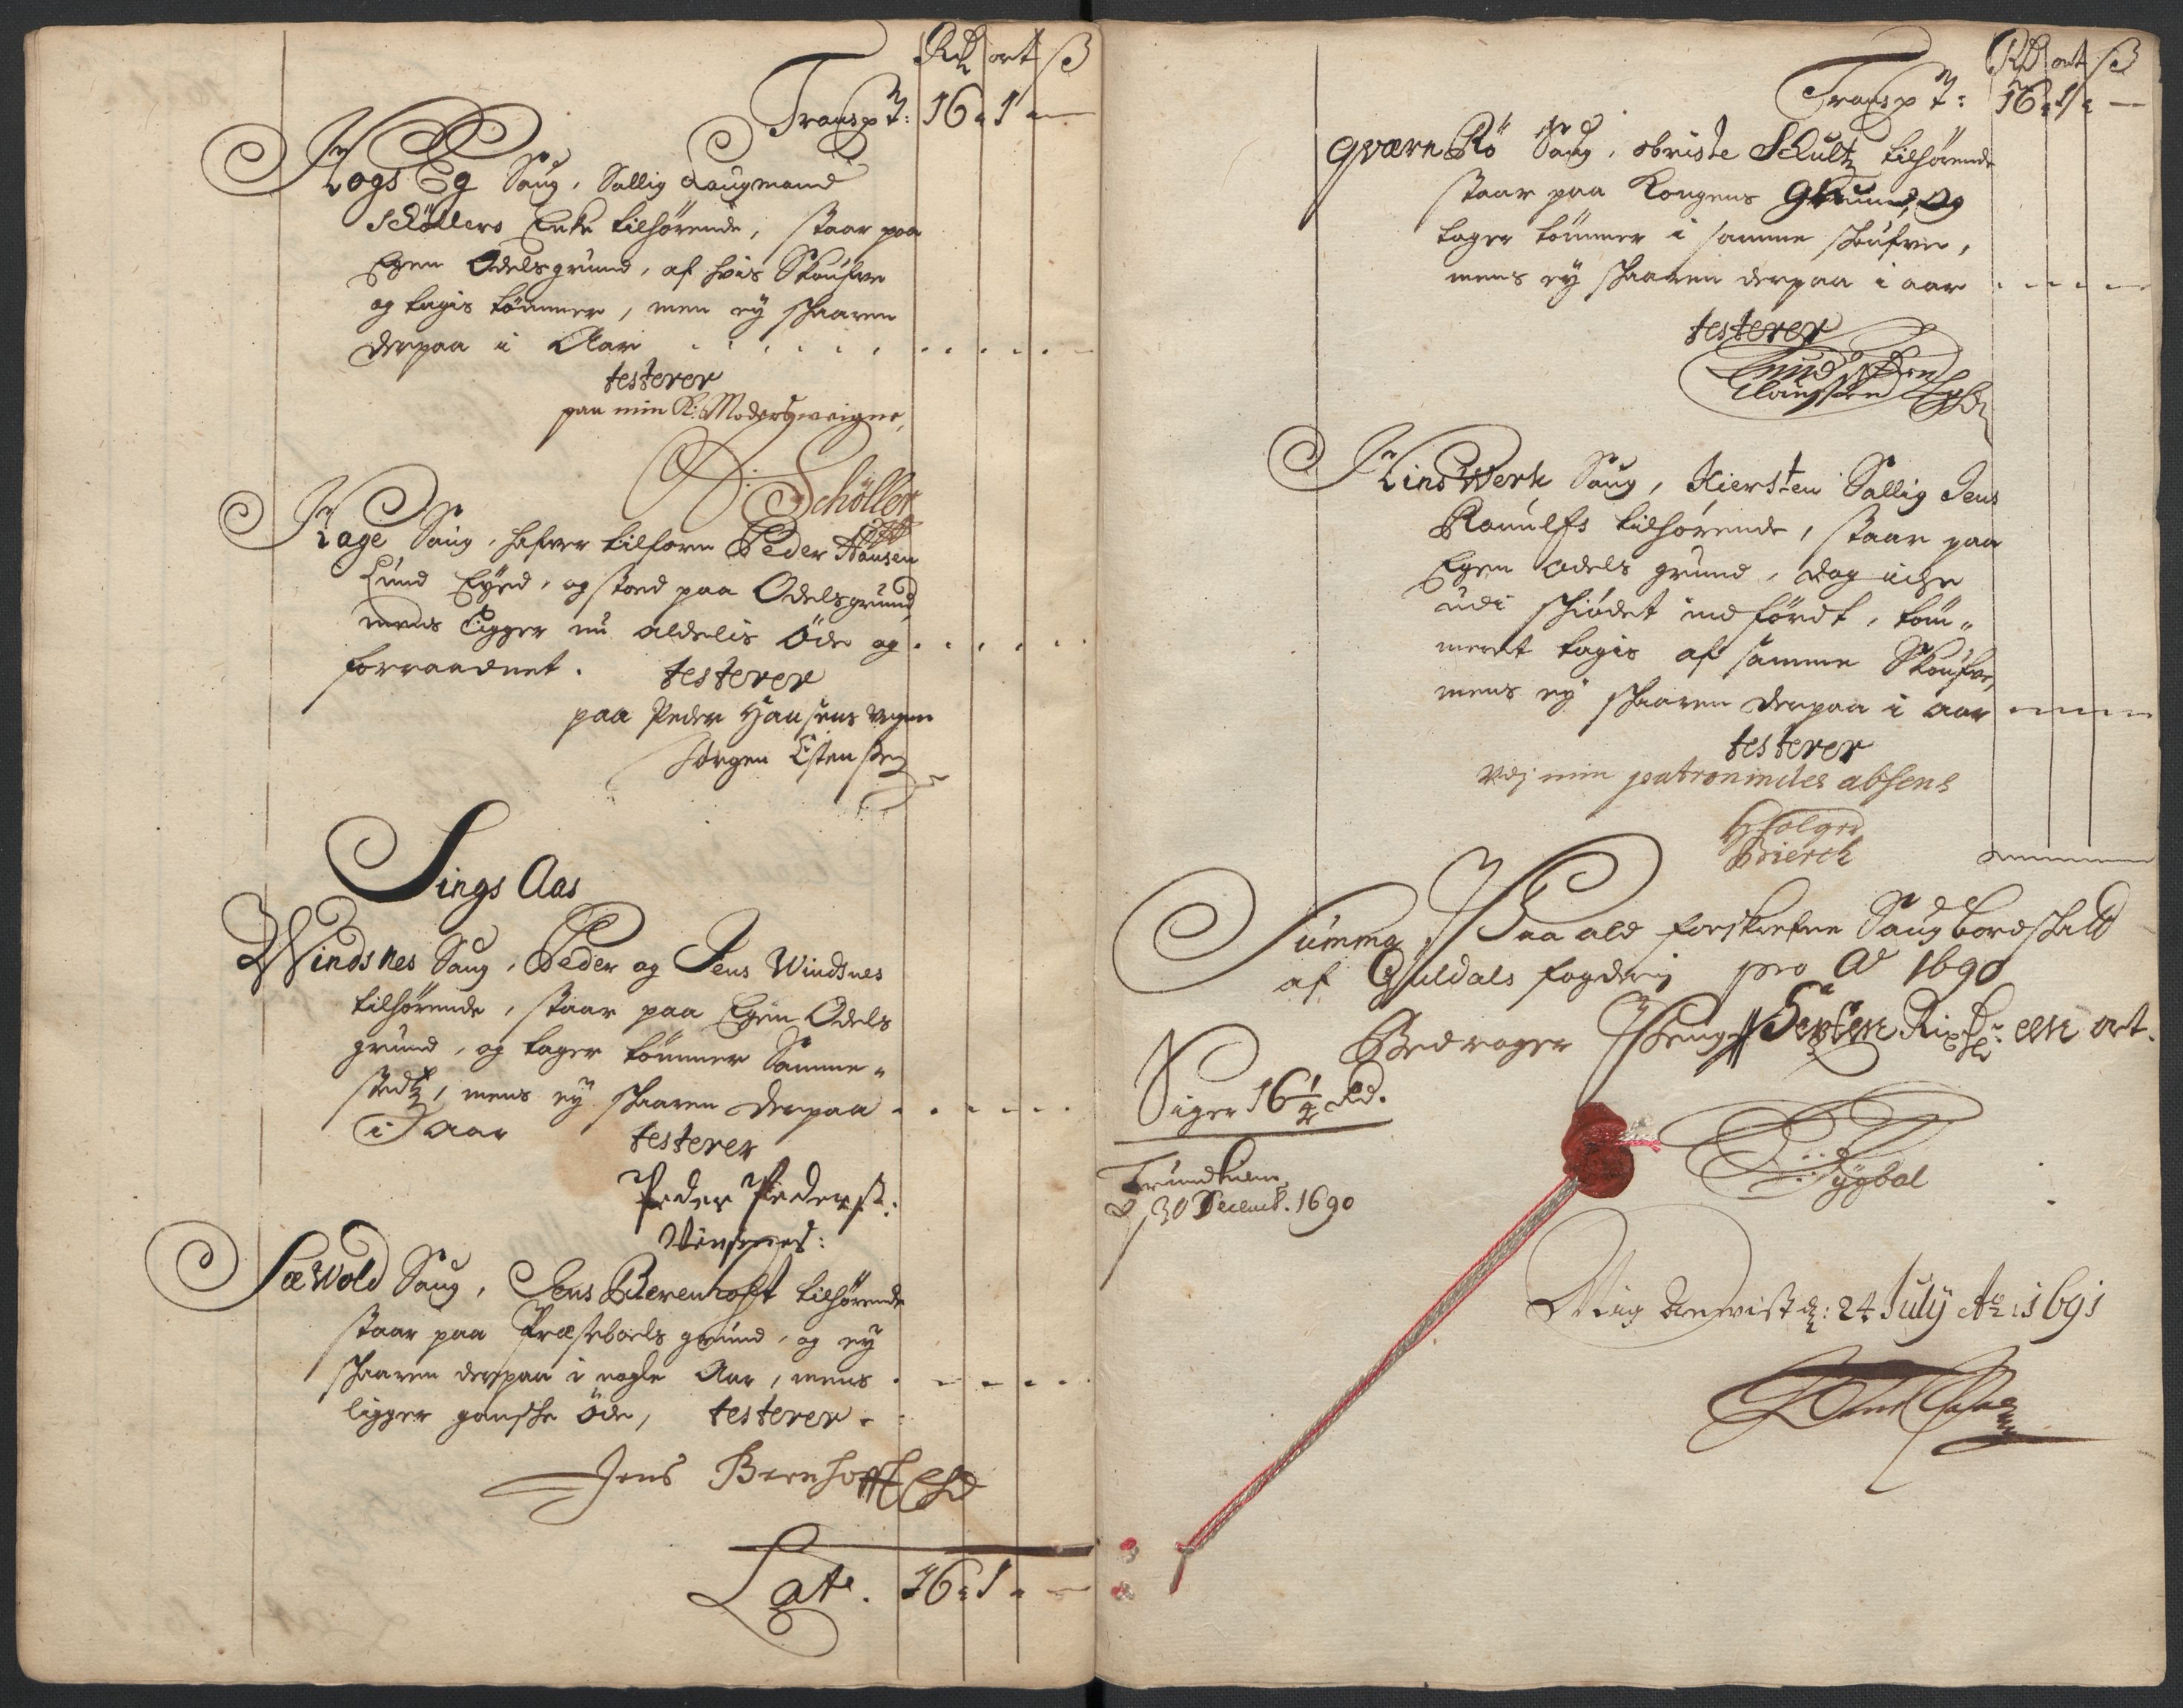 Rd ort ß
Transpt: 16 „ 1 „ —
Kogs Eg Saug, Sallig Laugmand
Schøllers Enke tilhørende, staar paa
Egen Odelsgrund, af hvis Skoufve
og tagis tømmer, men ey skaaren
derpaa i Aar
testerer
paa min K: Moders weigne,
Schøller
Kage Saug, hafver tilforn Peder Hansen
Lund Eyed, og stoed paa Odelsgrund,
mens ligger nu aldelis øde og
forraadnet. testerer
paa Peder Hansens vegne
Jørgen Estensen
Sings Aas
Windsnes Saug, Peder og Jens Windsnes
tilhørende, staar paa Egen Odels
grund, og tager tømmer Samme-
stedtz, mens ey skaaren derpaa
i Aar testerer
Peder Pederß:
Vinsnes:
Sæwold Saug, Jens Berenhoft tilhørende
staar paa Præsteboels grund, og ey
skaaren derpaa i nogle Aar, mens
ligger gansche øde, testerer
Jens Bernhofft
Late. 16 „ 1 „ —
Rd ort ß
Transpt: 16 „ 1 „ —
Qværn Rö Saug, obriste Schultz tilhørende
staar paa Kongens Grund, Og
tager tømmer i samme skoufve,
mens ey skaaren derpaa i aar
testerer
Knud
Claussøn
Hinswerk Saug, Kiersten Sallig Jens
Ranulfs tilhørende, staar paa
Egen odels grund, dog icke
udi skiødet indførdt, töm-
meret tagis af samme Skoufve,
mens ey skaaren derpaa i aar
testerer
Vdj min patronindes absens
Holger
Bierch
Summa Paa ald forskrefne Saugbordskatt
af Guldals fogderj pro Ao 1690
Bedrager Penge Sexten Rixdr een ort.
Siger 16 1/4 Rd.
Trundhiem
d 30 Decemb. 1690
Tygbol
Mig Anvist d: 24 July Ao 1691